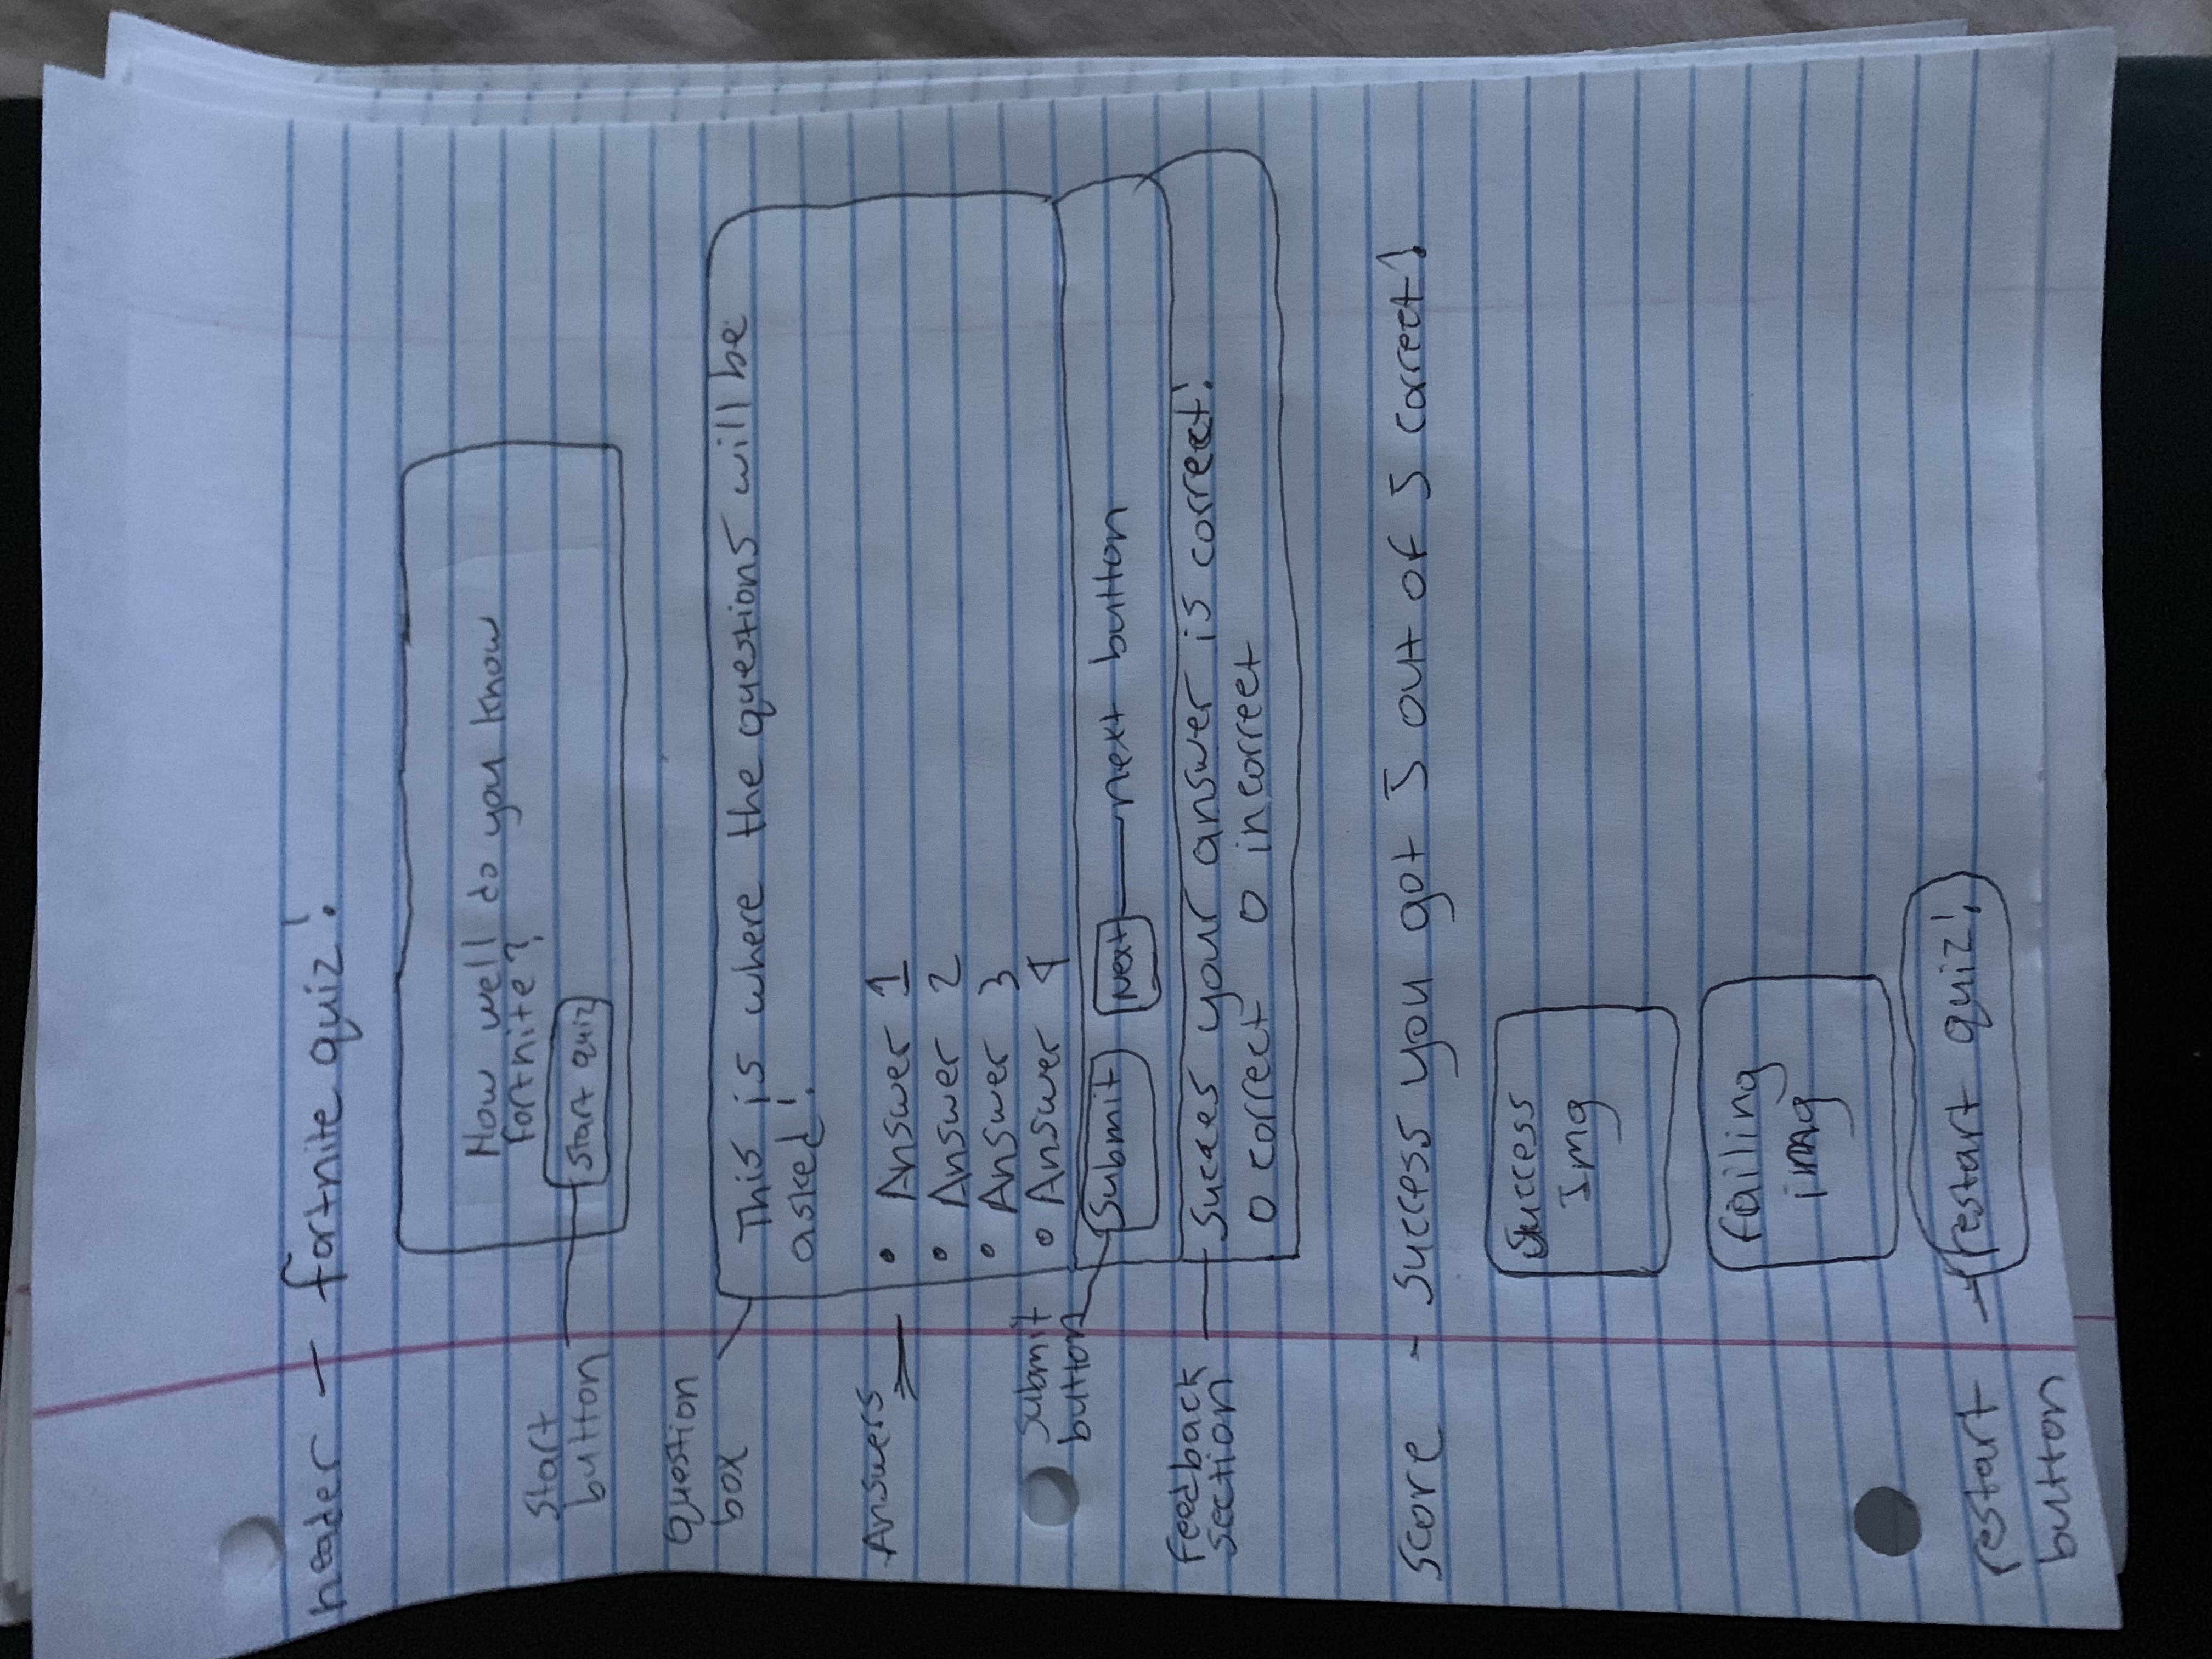 header - fortnite quiz!
How well do you know
fortnite?
Start
button
Start quiz
Question
box
This is where the questions will be
asked!
Answers
• Answer 1
• Answer 2
• Answer 3
• Answer 4
Submit
button
Submit Next next button
feedback
section
Succes your answer is correct!
0 correct 0 incorrect
score - Success you got 5 out of 5 correct!
Success
Img
failing
img
restart
button
restart quiz!